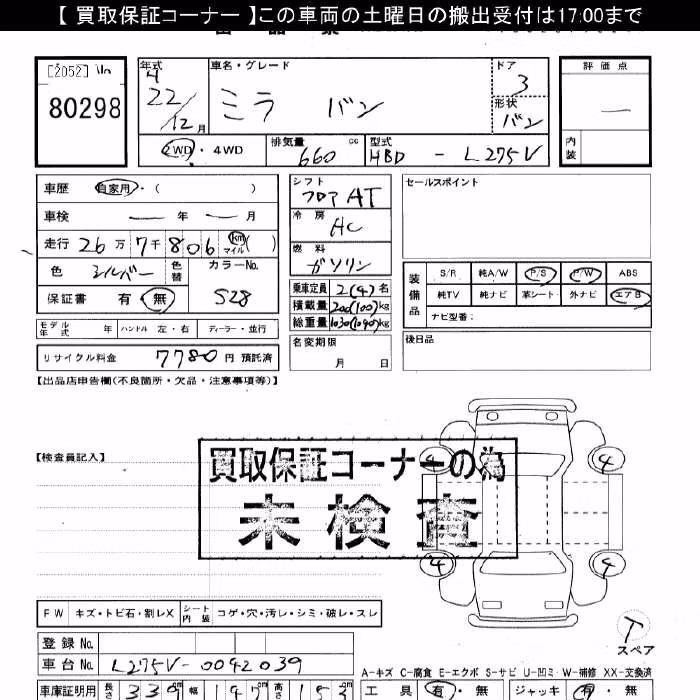 【 買取保証コーナー 】この車両の土曜日の搬出受付は17:00まで
[2052]
80298
年式
22/12月
車名・グレード
ミラ バン
ドア
3
形状
バン
評価点
内装
2WD・4WD
排気量 660 cc
型式 HBD - L275V
車歴 自家用・( )
車検 年 月
走行 26万7千806 km マイル ( )
色 シルバー 色替
カラーNo. S28
保証書 有・無
シフト フロア AT
冷房 AC
燃料 ガソリン
乗車定員 2(4)名
積載量 200(100)kg
総重量 1030(1090)kg
名変期限
月 日
セールスポイント
装備品
S/R 純A/W P/S P/W ABS
純TV 純ナビ 革シート 外ナビ エアB
ナビ型番:
後日品
モデル年式 年 ハンドル 左・右 ディーラー・並行
リサイクル料金 7780 円 預託済
【出品店申告欄(不良箇所・欠品・注意事項等)】
【検査員記入】
買取保証コーナーの為
未検査
4 4
4 4
T
スペア
FW キズ・トビ石・割レX シート内装 コゲ・穴・汚レ・シミ・破レ・スレ
登録 No.
車台 No. L275V-0042039
A-キズ C-腐食 E-エクボ S-サビ U-凹ミ W-補修 XX-交換済
車庫証明用 長さ 339cm 幅 147cm 高さ 153cm
工具 有・無 ジャッキ 有・無